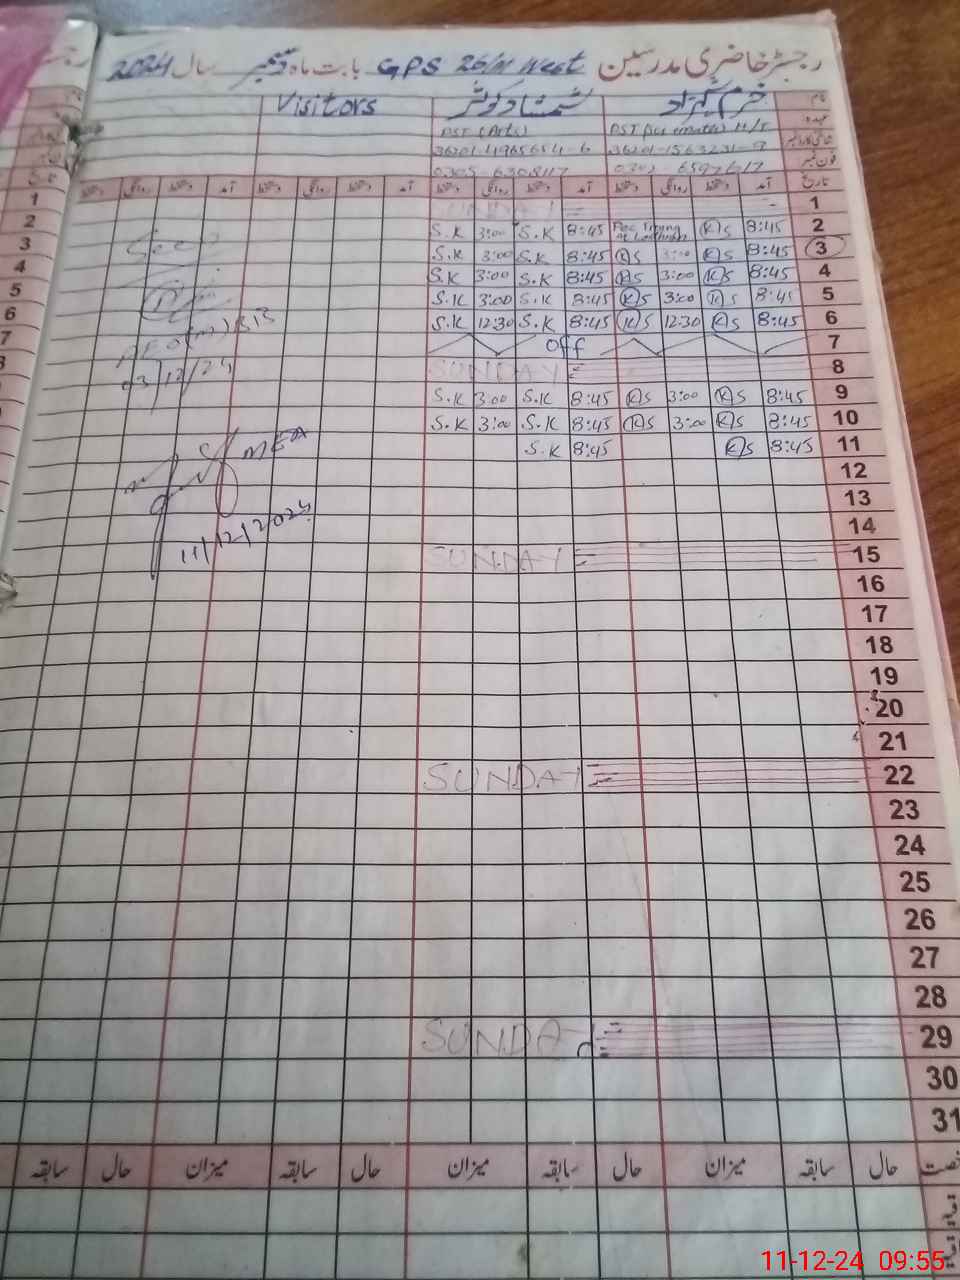 رجسٹر حاضری مدرسین GPS 26/M West بابت ماہ دسمبر سال 2024
نام خرم شہزاد شمشاد کوثر Visitors
عہدہ PST (Arts)
شناختی کارڈ نمبر 36201-1563231-9 36201-4965654-6
فون نمبر 0305-6308117
تاریخ آمد دستخط روانگی دستخط آمد دستخط روانگی دستخط آمد دستخط روانگی دستخط آمد دستخط روانگی دستخط
1 SUNDAY
2 8:45 KS 8:45 S.K 3:00 S.K
3 8:45 KS 3:00 KS 8:45 S.K 3:00 S.K
4 8:45 KS 3:00 KS 8:45 S.K 3:00 S.K
5 8:45 KS 3:00 KS 8:45 S.K 3:00 S.K
6 8:45 KS 12:30 KS 8:45 S.K 12:30 S.K
7 off
8 SUNDAY
9 8:45 KS 3:00 KS 8:45 S.K 3:00 S.K
10 8:45 KS 3:00 KS 8:45 S.K 3:00 S.K
11 8:45 KS 8:45 S.K
12
13
14
15 SUNDAY
16
17
18
19
20
21
22 SUNDAY
23
24
25
26
27
28
29 SUNDAY
30
31
03/12/24
MEA
11/12/2024
حال سابقہ میزان حال سابقہ میزان حال سابقہ میزان حال سابقہ
11-12-24 09:55